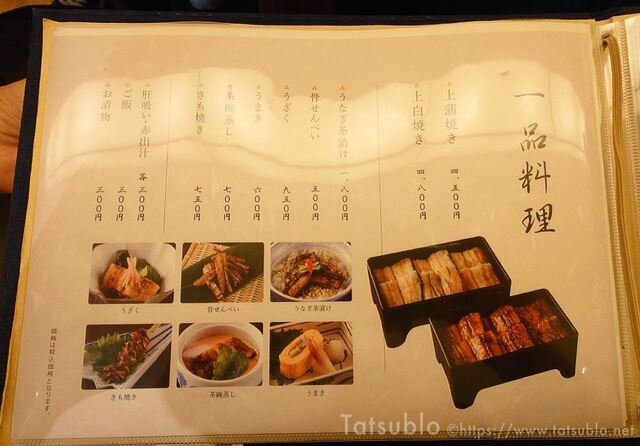 一品料理
上蒲焼き 四、五〇〇円
上白焼き 四、八〇〇円
うなぎ茶漬け 一、八〇〇円
骨せんべい 五〇〇円
うざく 九五〇円
うまき 六〇〇円
茶碗蒸し 七〇〇円
きも焼き 七五〇円
肝吸い・赤出汁 各 三〇〇円
ご飯 三〇〇円
お漬物 三〇〇円
うざく
骨せんべい
うなぎ茶漬け
きも焼き
茶碗蒸し
うまき
価格は税込価格となります。
Tatsublo ©https://www.tatsublo.net